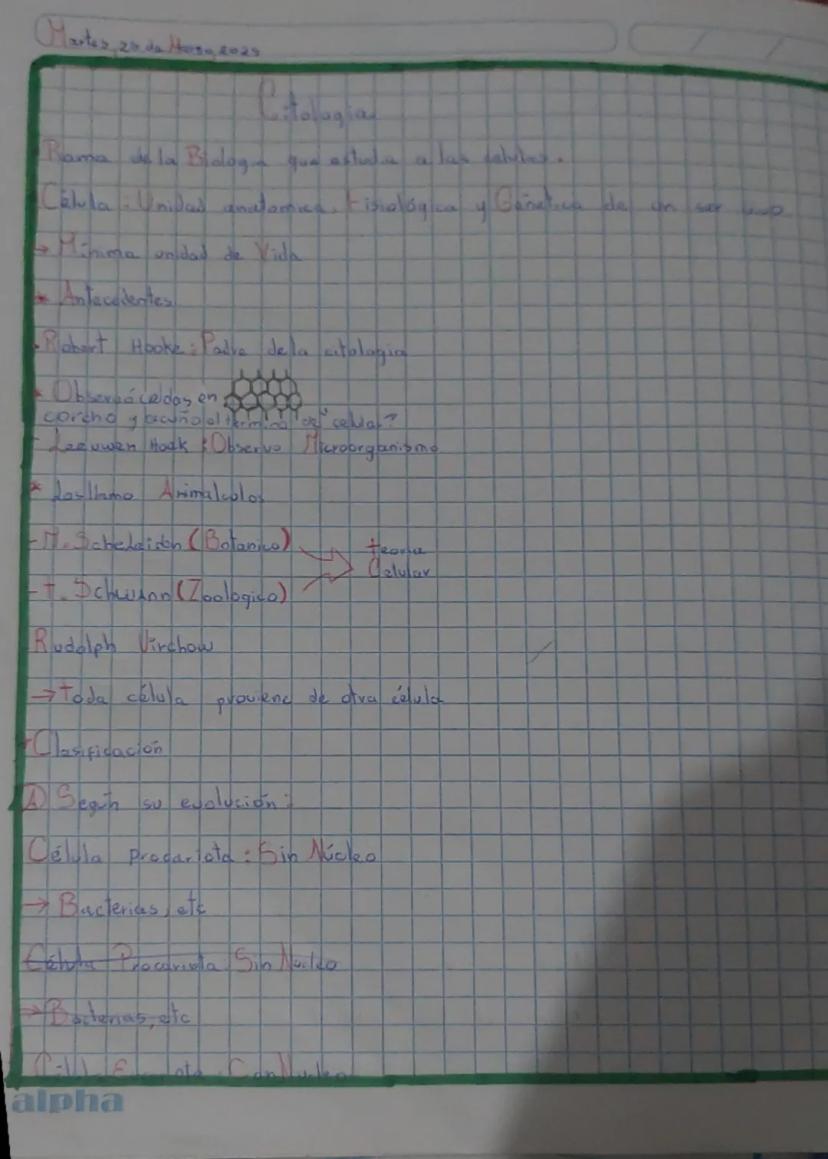 Martes, 2 de Marzo, 2025
Citologia
Rama de la Biologia que estudia a las celulas.
Célula: Unidad anatomica, Fisiológica y Génetica de un ser vivo
→ Mínima unidad de Vida
* Antecedentes
• Robert Hooke: Padre de la citologia
* Observó celdas en
corcho y acuño el termino celula
- Leeuwen Hook: Observo Microorganismo
* Los llamo Animalculos
- M. Scheleiden (Botanico)
teoria
Celular
- T. Schwann (Zoologico)
Rudolph Virchow
→ Toda célula proviene de otra célula
Clasificación
A) Según su evolución:
Célula procariota: Sin Núcleo
→ Bacterias, etc
Célula Procariota Sin Nucleo
→ Bacterias, etc
Con Nucleo
alpha